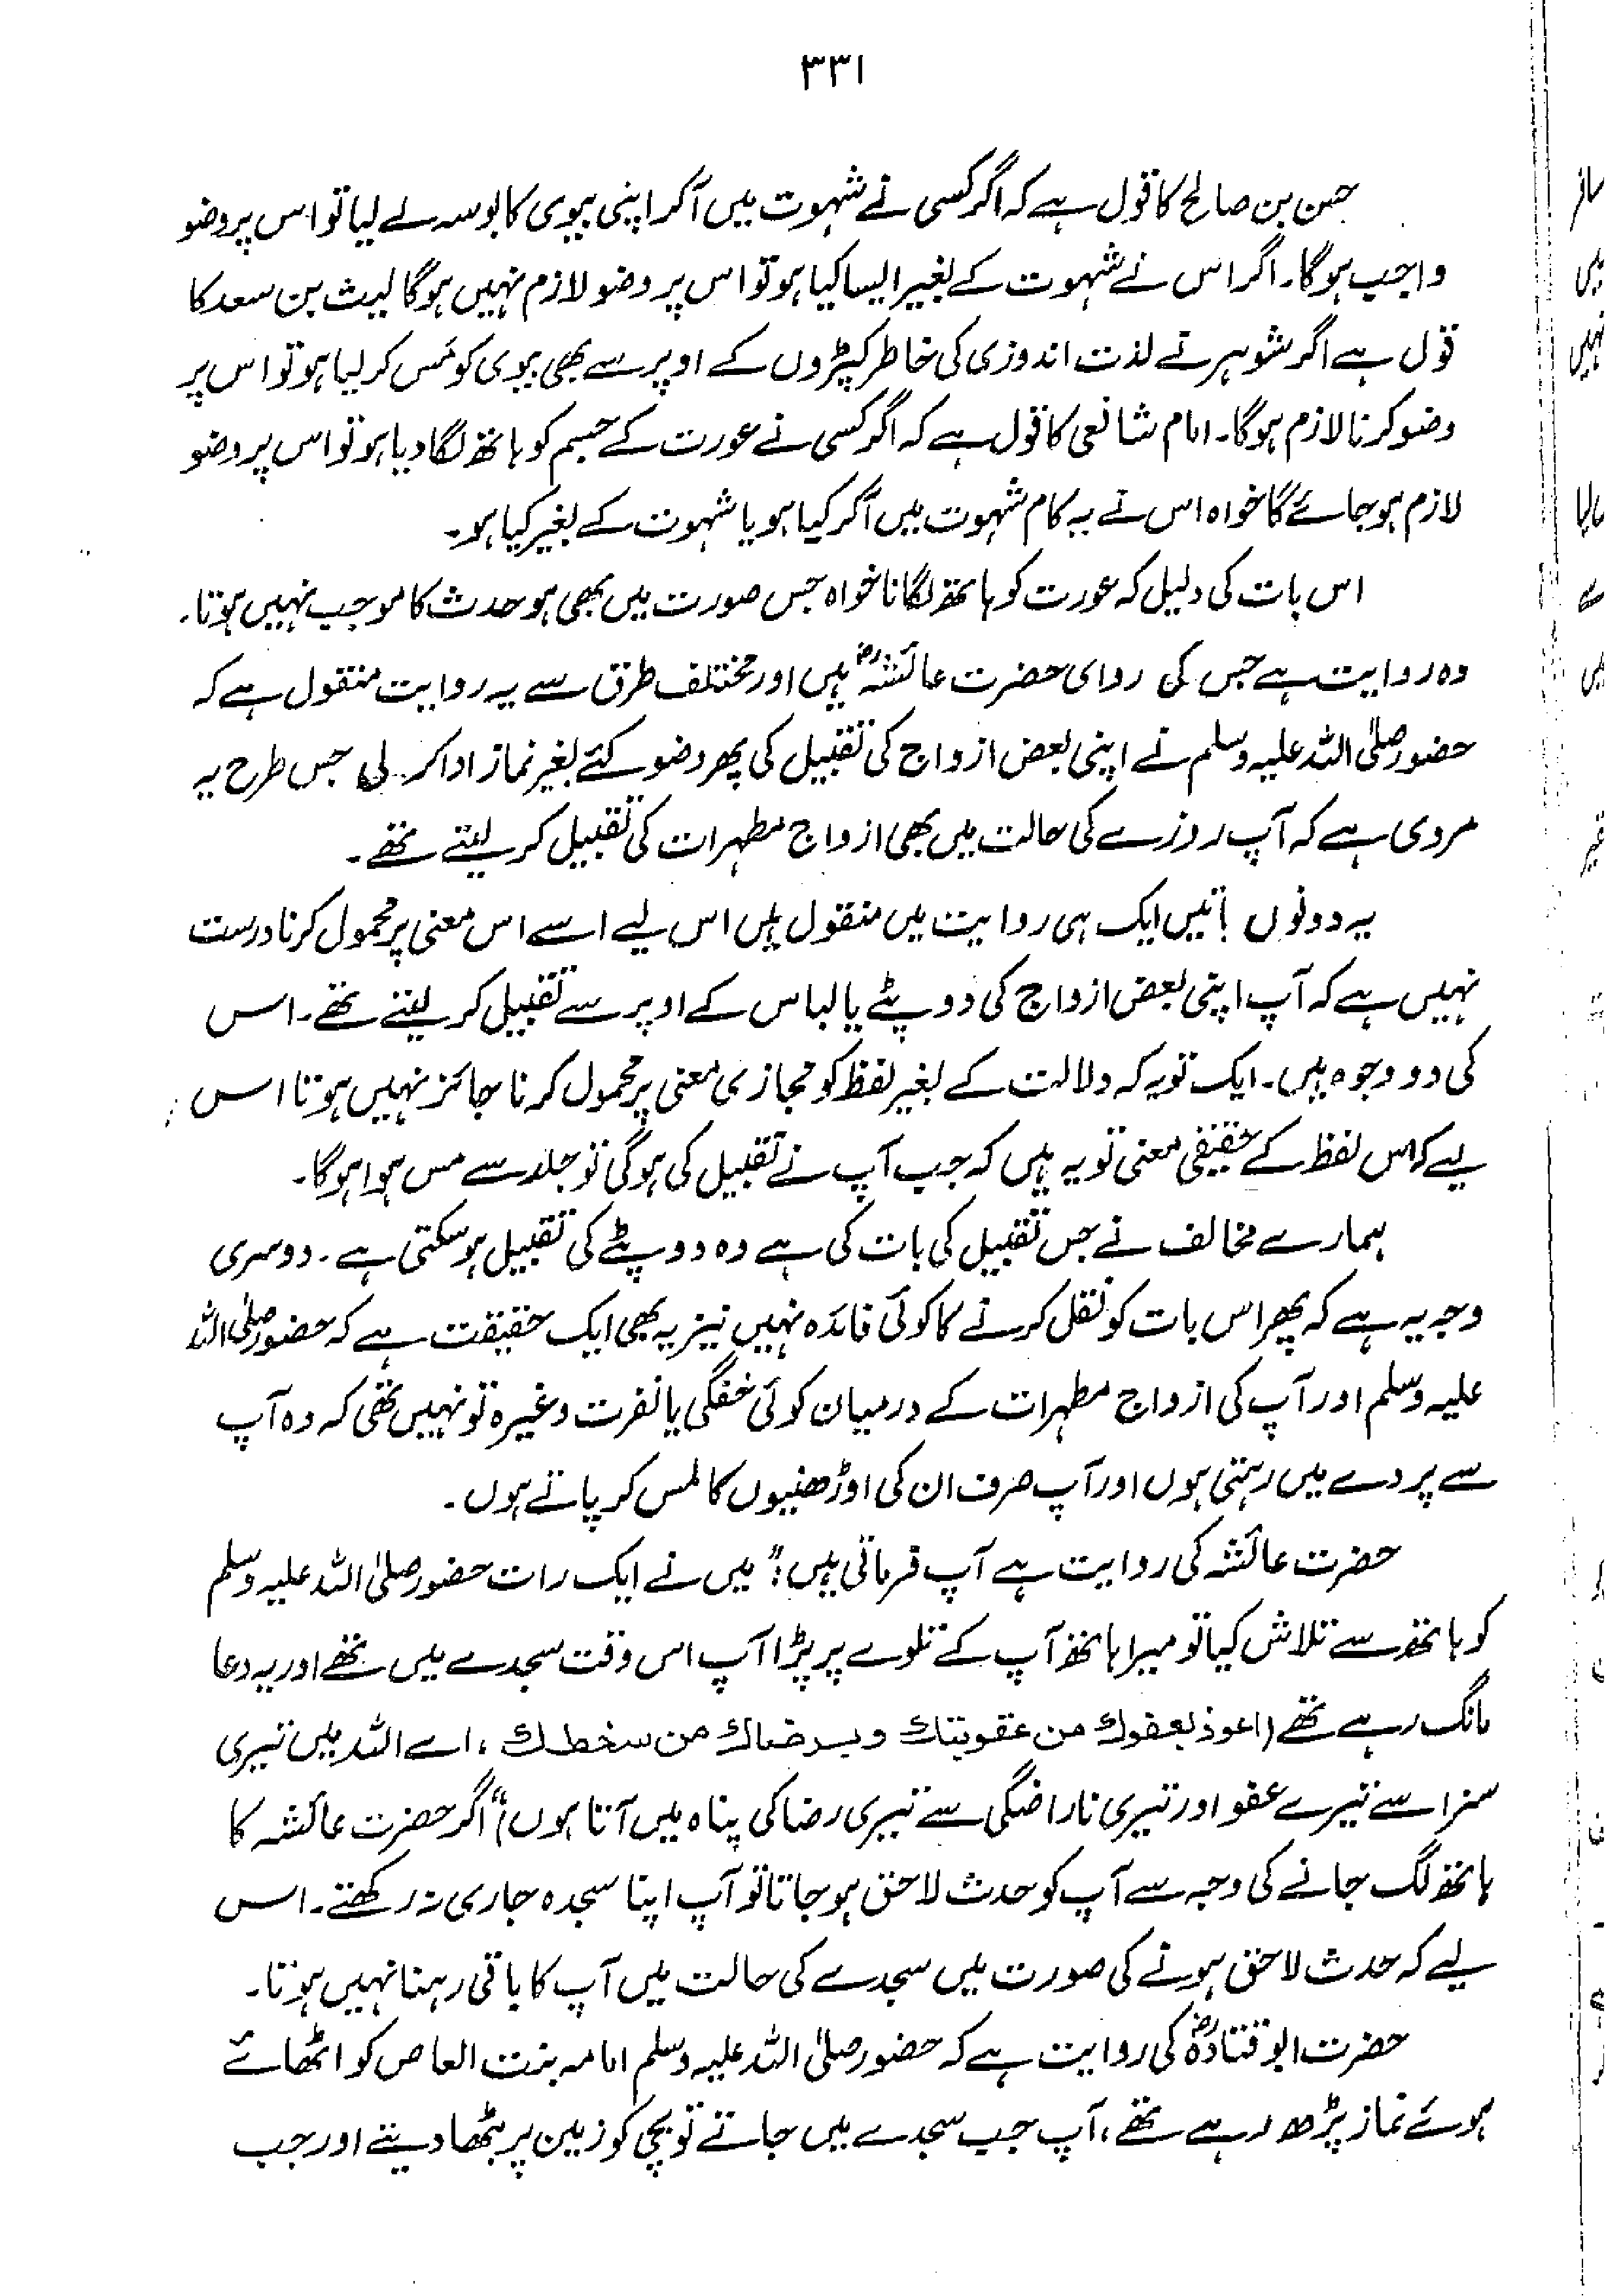 ۳۳۱
حسن بن صالح کا قول ہے کہ اگر کسی نے شہوت میں آکر اپنی بیوی کا بوسہ لے لیا تو اس پر وضو
واجب ہوگا۔ اگر اس نے شہوت کے بغیر ایسا کیا ہو تو اس پر وضو لازم نہیں ہوگا لیث بن سعد کا
قول ہے اگر شوہر نے لذت اندوزی کی خاطر کپڑوں کے اوپر سے بھی بیوی کو مَس کر لیا ہو تو اس پر
وضو کرنا لازم ہوگا۔ امام شافعی کا قول ہے کہ اگر کسی نے عورت کے جسم کو ہاتھ لگا دیا ہو تو اس پر وضو
لازم ہو جائے گا خواہ اس نے یہ کام شہوت میں آکر کیا ہو یا شہوت کے بغیر کیا ہو۔
اس بات کی دلیل کہ عورت کو ہاتھ لگانا خواہ جس صورت میں بھی ہو حدث کا موجب نہیں ہوتا۔
وہ روایت ہے جس کی روای حضرت عائشہؓ ہیں اور مختلف طرق سے یہ روایت منقول ہے کہ
حضور صلی اللہ علیہ وسلم نے اپنی بعض ازواج کی تقبیل کی پھر وضو کئے بغیر نماز ادا کر لی جس طرح یہ
مروی ہے کہ آپ روزے کی حالت میں بھی ازواج مطہرات کی تقبیل کر لیتے تھے۔
یہ دونوں باتیں ایک ہی روایت میں منقول ہیں اس لیے اسے اس معنی پر محمول کرنا درست
نہیں ہے کہ آپ اپنی بعض ازواج کی دوپٹے یا لباس کے اوپر سے تقبیل کر لیتے تھے۔ اس
کی دو وجوہ ہیں۔ ایک تو یہ کہ دلالت کے بغیر لفظ کو مجازی معنی پر محمول کرنا جائز نہیں ہوتا اس
لیے کہ اس لفظ کے حقیقی معنی تو یہ ہیں کہ جب آپ نے تقبیل کی ہوگی تو جلد سے مس ہوا ہوگا۔
ہمارے مخالف نے جس تقبیل کی بات کی ہے وہ دوپٹے کی تقبیل ہوسکتی ہے۔ دوسری
وجہ یہ ہے کہ پھر اس بات کو نقل کرنے کا کوئی فائدہ نہیں نیز یہ بھی ایک حقیقت ہے کہ حضور صلی اللہ
علیہ وسلم اور آپ کی ازواج مطہرات کے درمیان کوئی خفگی یا نفرت وغیرہ تو نہیں تھی کہ وہ آپ
سے پردے میں رہتی ہوں اور آپ صرف ان کی اوڑھنیوں کا لمس کر پاتے ہوں۔
حضرت عائشہ کی روایت ہے آپ فرماتی ہیں: "میں نے ایک رات حضور صلی اللہ علیہ وسلم
کو ہاتھ سے تلاش کیا تو میرا ہاتھ آپ کے تلوے پر پڑا آپ اس وقت سجدے میں تھے اور یہ دعا
مانگ رہے تھے (اعوذ بعفوك من عقوبتك وبرضاك من سخطك، اے اللہ میں تیری
سزا سے تیرے عفو اور تیری ناراضگی سے تیری رضا کی پناہ میں آتا ہوں)" اگر حضرت عائشہ کا
ہاتھ لگ جانے کی وجہ سے آپ کو حدث لاحق ہو جاتا تو آپ اپنا سجدہ جاری نہ رکھتے۔ اس
لیے کہ حدث لاحق ہونے کی صورت میں سجدے کی حالت میں آپ کا باقی رہنا نہیں ہوتا۔
حضرت ابوقتادہؓ کی روایت ہے کہ حضور صلی اللہ علیہ وسلم امامہ بنت العاص کو اٹھائے
ہوئے نماز پڑھ رہے تھے، آپ جب سجدے میں جاتے تو بچی کو زمین پر بٹھا دیتے اور جب